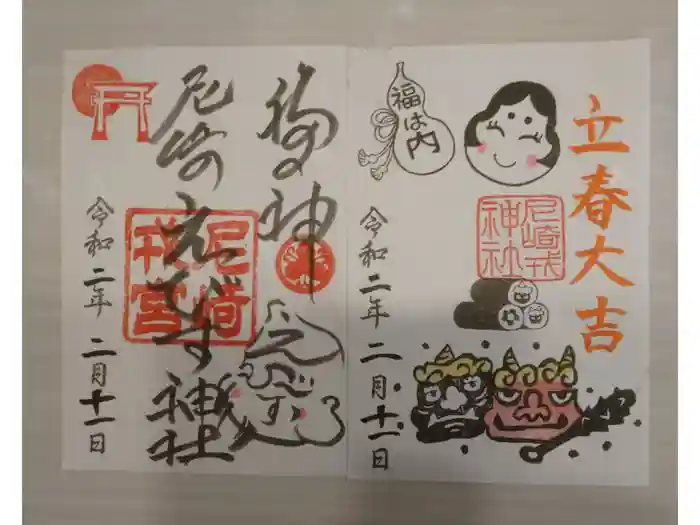 立春大吉
福は内
尼崎戎
神社
令和二年 二月十一日
福の神
尼崎えびす神社
尼崎
戎宮
令和二年 二月十一日